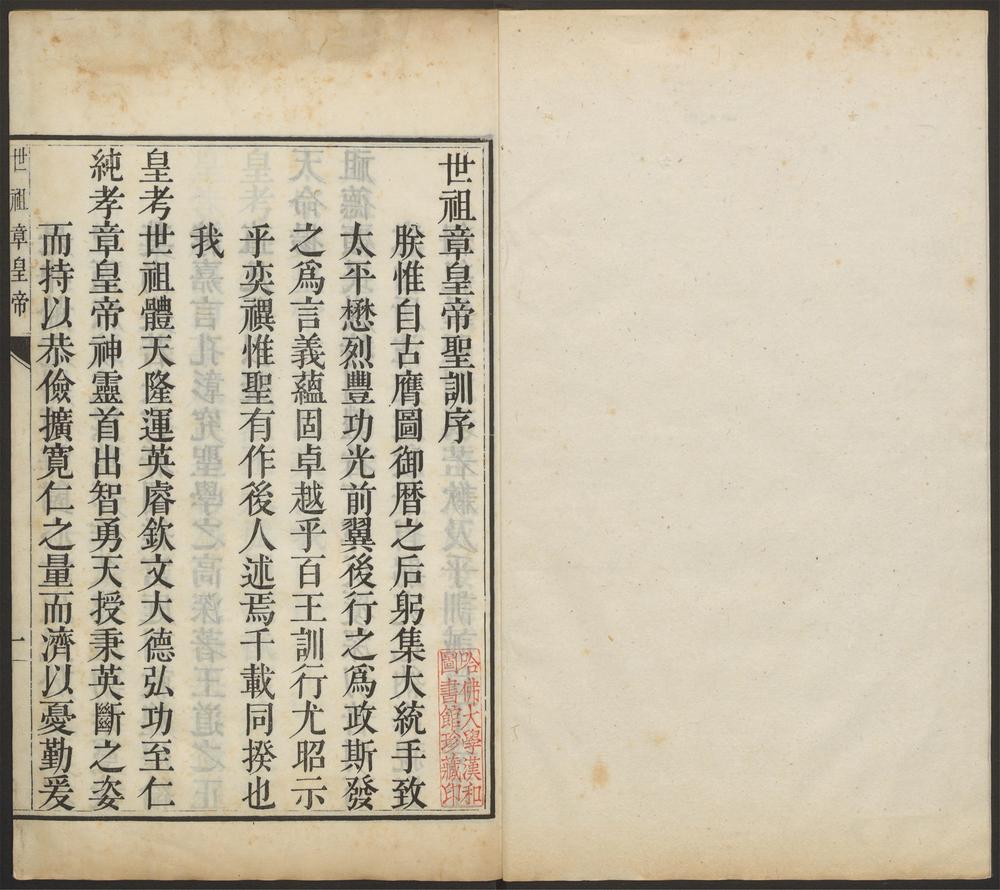 世祖章皇帝聖訓序
朕惟自古膺圖御曆之后躬集大統手致
太平懋烈豐功光前翼後行之爲政斯發
之爲言義蘊固卓越乎百王訓行尤昭示
乎奕禩惟聖有作後人述焉千載同揆也
我
皇考世祖體天隆運英睿欽文大德弘功至仁
純孝章皇帝神靈首出智勇天授秉英斷之姿
而持以恭儉擴寬仁之量而濟以憂勤爰
世祖章皇帝
一
哈佛大學漢和
圖書館珍藏印